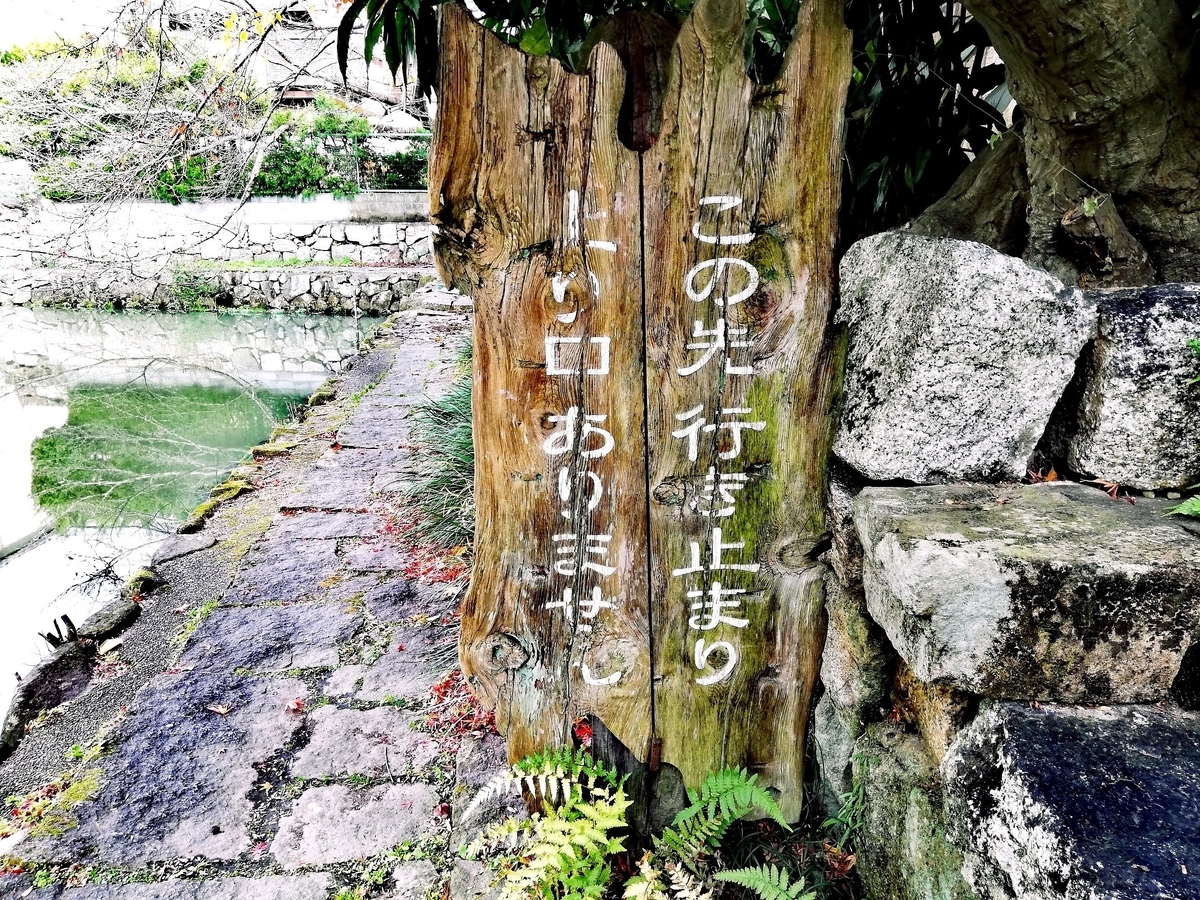 この先行き止まり
上り口ありません